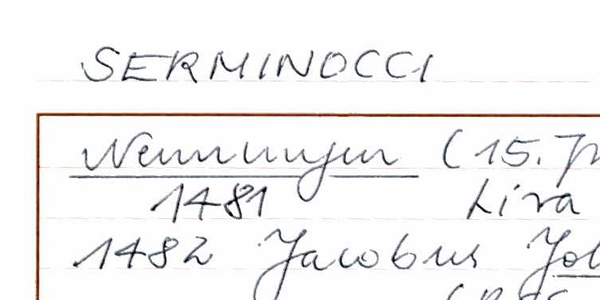 SERMINOCCI
Nennungen (15. J
1481 Lira
1482 Jacobus